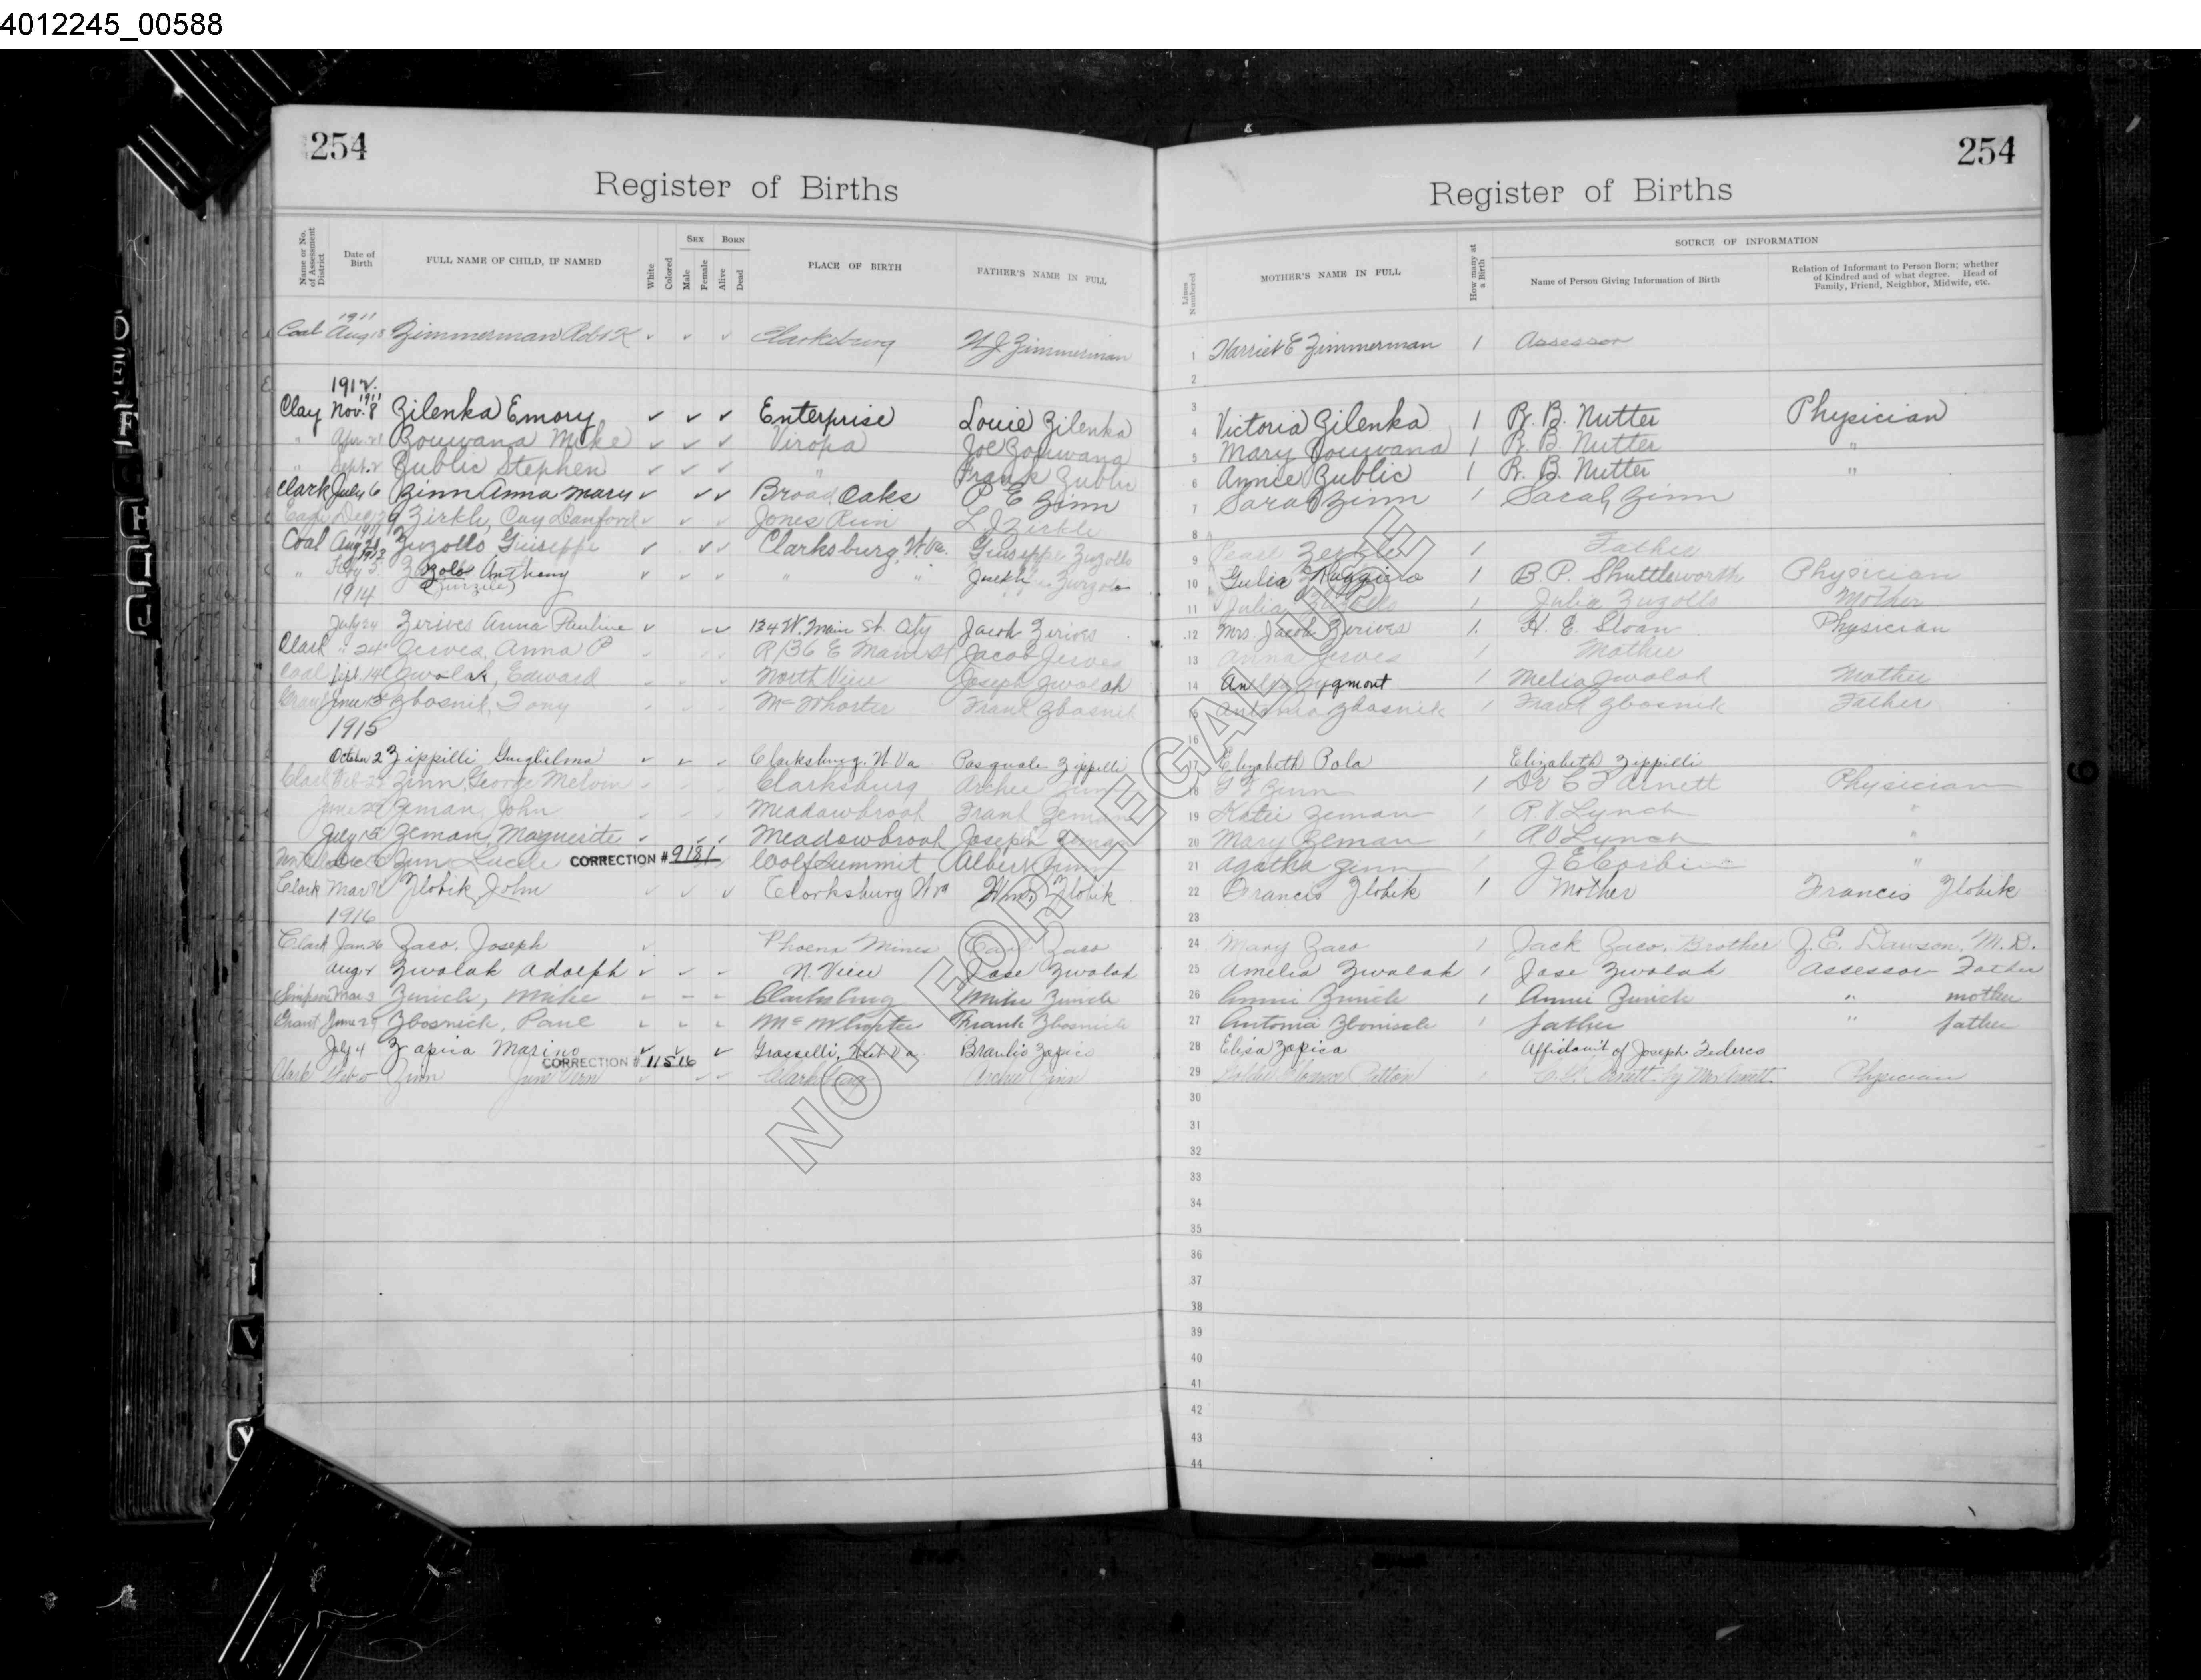 4012245_00588
254
Register of Births
Name or No. of Assessment District
Date of Birth
FULL NAME OF CHILD, IF NAMED
White
Colored
SEX
Male
Female
BORN
Alive
Dead
PLACE OF BIRTH
FATHER'S NAME IN FULL
1911
Coal Aug 18 Zimmerman Robt K ✓ ✓ ✓ Clarksburg W J Zimmerman
1912
1911
Clay Nov. 8 Zilenka Emory ✓ ✓ ✓ Enterprise Louie Zilenka
" Zouwana Mike ✓ ✓ ✓ Viropa Joe Zouwana
" Sept. 2 Zublic Stephen ✓ ✓ ✓ " Frank Zublic
Clark July 6 Zinn Anna Mary ✓ ✓ ✓ Broad Oaks P E Zinn
Zirkle, Coy Danford ✓ ✓ ✓ Jones Run L J Zirkle
1911
Coal Aug Zuzollo Guiseppe ✓ ✓ ✓ Clarksburg, W. Va. Guiseppe Zuzollo
" Anthony ✓ ✓ ✓ " " Joseph
1914
July 24 Zerives Anna Pauline ✓ ✓ ✓ 134 W. Main St. City Jacob Zerives
Clark " 24 Zerves, Anna P E Main St Jacob Zerves
Coal Sept. 14 Zwolak, Edward North View Joseph Zwolak
Grant June Zbosnik, Tony McWhorter Frank Zbosnik
1915
October 2 Zippilli Gugliolma ✓ ✓ ✓ Clarksburg, W. Va Pasquale Zippilli
Clark Zinn, George Melvin Clarksburg Archie Zinn
June 29 Zeman, John Meadowbrook Frank Zeman
July 15 Zeman, Maguerite ✓ ✓ ✓ Meadowbrook Joseph
Dec 6 Zinn, Lucile CORRECTION # 9181 Wolf Summit Albert Zinn
Clark Mar Zlobik, John ✓ ✓ ✓ Clarksburg W Va Wm. Zlobik
1916
Clark Jan 26 Zaco, Joseph ✓ Phoenix Mines Carl Zaco
Aug 2 Zwolak Adolph ✓ ✓ ✓ N. View Jose Zwolak
Simpson Mar 3 Zurich, Mike Clarksburg Mike Zurich
Grant June 29 Zbosnick, Paul McWhorter Frank Zbosnick
July 4 Zapica Marino ✓ ✓ ✓ Grasselli, West Va. Braulio Zapico
CORRECTION # 11516
Clark Feb Zinn June Vern Clarksburg Archie Zinn
254
Register of Births
Lines Numbered
MOTHER'S NAME IN FULL
How many at a Birth
SOURCE OF INFORMATION
Name of Person Giving Information of Birth
Relation of Informant to Person Born; whether
of Kindred and of what degree. Head of
Family, Friend, Neighbor, Midwife, etc.
1 Harriet E Zimmerman 1 Assessor
2
3
4 Victoria Zilenka 1 R. B. Nutter Physician
5 Mary Zouwana 1 R. B. Nutter "
6 Annie Zublic 1 R. B. Nutter "
7 Sarah Zinn 1 Sarah Zinn
8
9 Pearl Zerkle 1 Father
10 Gulia Ruggiero 1 B. P. Shuttleworth Physician
11 Julia Zuzollo 1 Julia Zuzollo Mother
12 Mrs Jacob Zerives 1. H. E. Sloan Physician
13 Anna Zerves 1 Mother
14 Zygmont 1 Melia Zwolak Mother
15 Antonia Zbosnik 1 Frank Zbosnik Father
16
17 Elizabeth Pola Elizabeth Zippilli
18 Zinn 1 Dr C F Arnett Physician
19 Katie Zeman 1 R V Lynch "
20 Mary Zeman 1 R V Lynch "
21 Agatha Zinn 1 J E Corbin "
22 Francis Zlobik 1 Mother Francis Zlobik
23
24 Mary Zaco 1 Jack Zaco, Brother J. E. Dawson, M. D.
25 Amelia Zwolak 1 Jose Zwolak Assessor Father
26 Annie Zurich 1 Annie Zurich " mother
27 Antonia 1 father " father
28 Elisa Zapica Affidavit of Joseph Federco
29 1 Physician
30
31
32
33
34
35
36
37
38
39
40
41
42
43
44
NOT FOR LEGAL USE